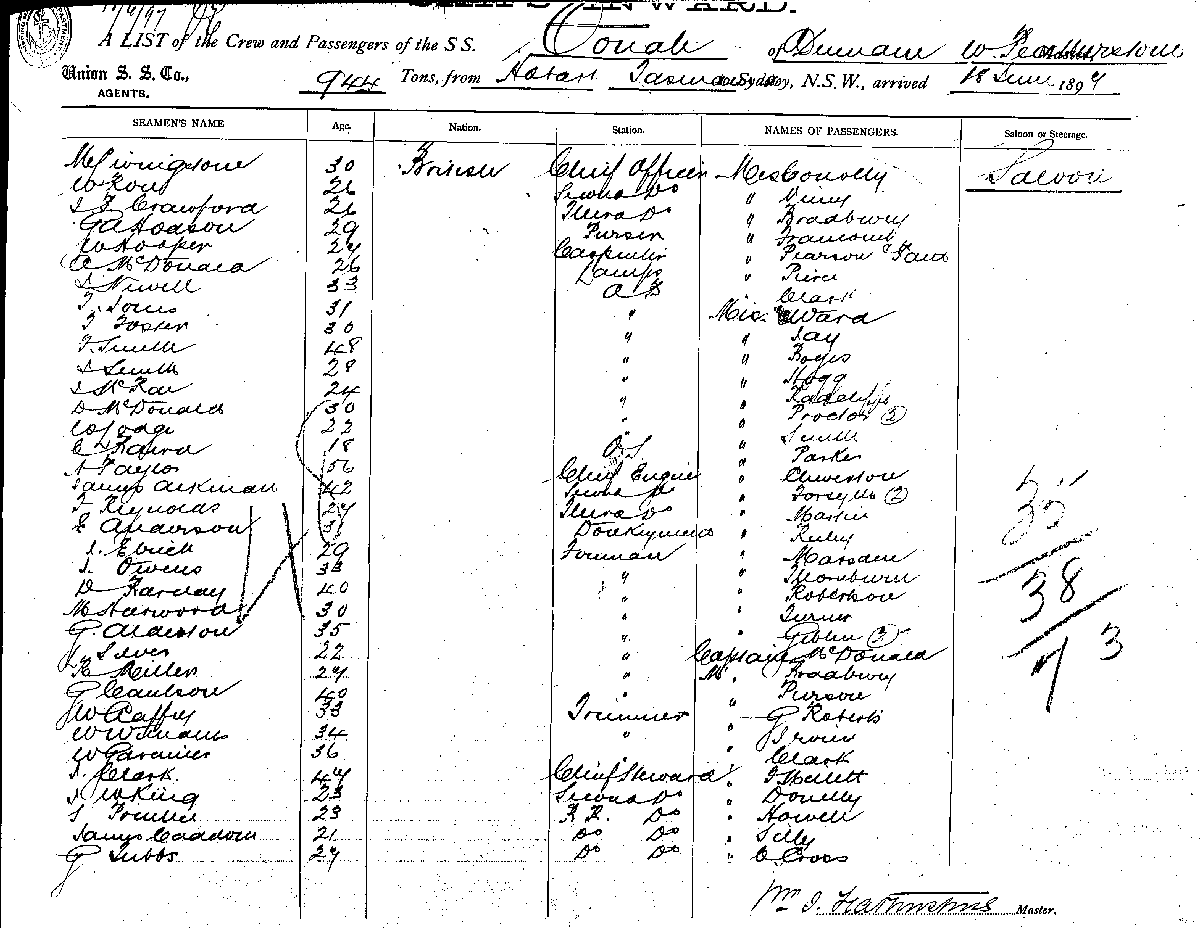 SHIPS INWARD.
A LIST of the Crew and Passengers of the S.S. Oonah of Dunedin W. Featherstone Master,
Union S. S. Co., AGENTS. 944 Tons, from Hobart Tasmania to Sydney, N.S.W., arrived 18 June 1897
SEAMEN'S NAME Age. Nation. Station. NAMES OF PASSENGERS. Saloon or Steerage.
M Livingstone 30 British Chief Officer Mrs Conolly Saloon
W Ross 26 Second Do "
J F Crawford 26 Third Do " Bradbury
G A Hodson 29 Purser " Francomb
W Hooper 24 Carpenter " Pearson
C McDonald 26 Lamps " Pierce
J Newell 33 A B " Clark
T. Jones 31 " Miss Ward
T Foster 30 " " Jay
T. Smith 48 " " Boyes
J Smith 28 " " Hogg
J McRae 24 " " Radcliffe
D McDonald 30 " " Proctor
W Lodge 22 " " Smith
C Laird 18 O.S " Parker
A Taylor 56 Chief Engine "
James Aikman 42 Second Do " Forsyth (2)
T Reynolds 27 Third Do " Martin
E Anderson 31 Donkeyman " Ruby
J. Ebrich 29 Foreman " Marsden
J. Owens 33 " " Thornburn
D Harvey 40 " " Robertson
M Harwood 30 " " Turner
G. Alderson 35 " " Giblin
J. Silver 22 " Captain McDonald
R Miller 24 " Mr. Bradbury
G Coulson 40 " " Purson
J W Caffry 33 Trimmer " G Roberts
W Williams 34 " " Brown
W Gardiner 36 " Clark
J. Clark. 44 Chief Steward " T Mallett
J W King 23 Second Do " Donelly
23 F.R. Do " Howell
James Caddow 21 Do Do " Lilly
G Tubbs 24 Do Do " C Cross
35
38
73
Wm J. Featherstone Master.